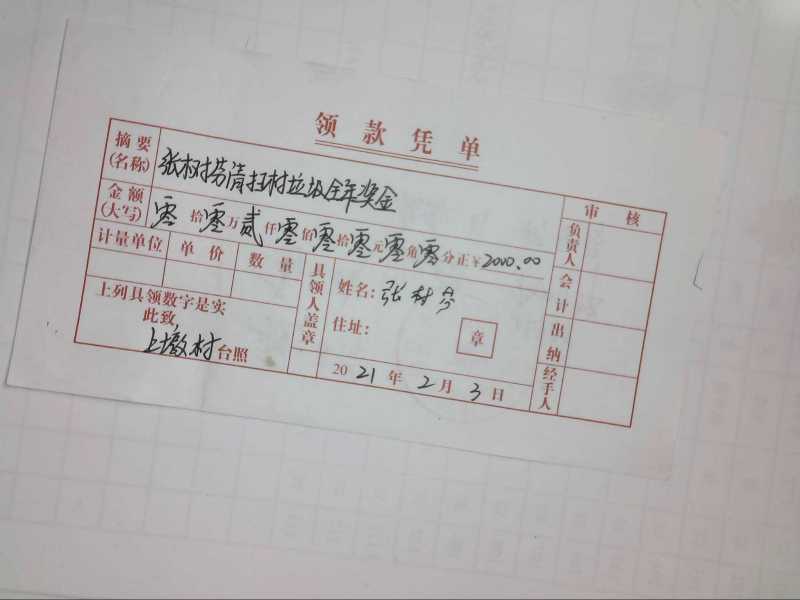 领款凭单
摘要(名称) 张树芬清扫村垃圾全年奖金
金额(大写) 零拾零万贰仟零佰零拾零元零角零分正¥2000.00
计量单位 单价 数量
上列具领数字是实
此致
上墩村台照
具领人盖章
姓名:张树芬
住址:
章
2021年2月3日
审核
负责人
会计
出纳
经手人